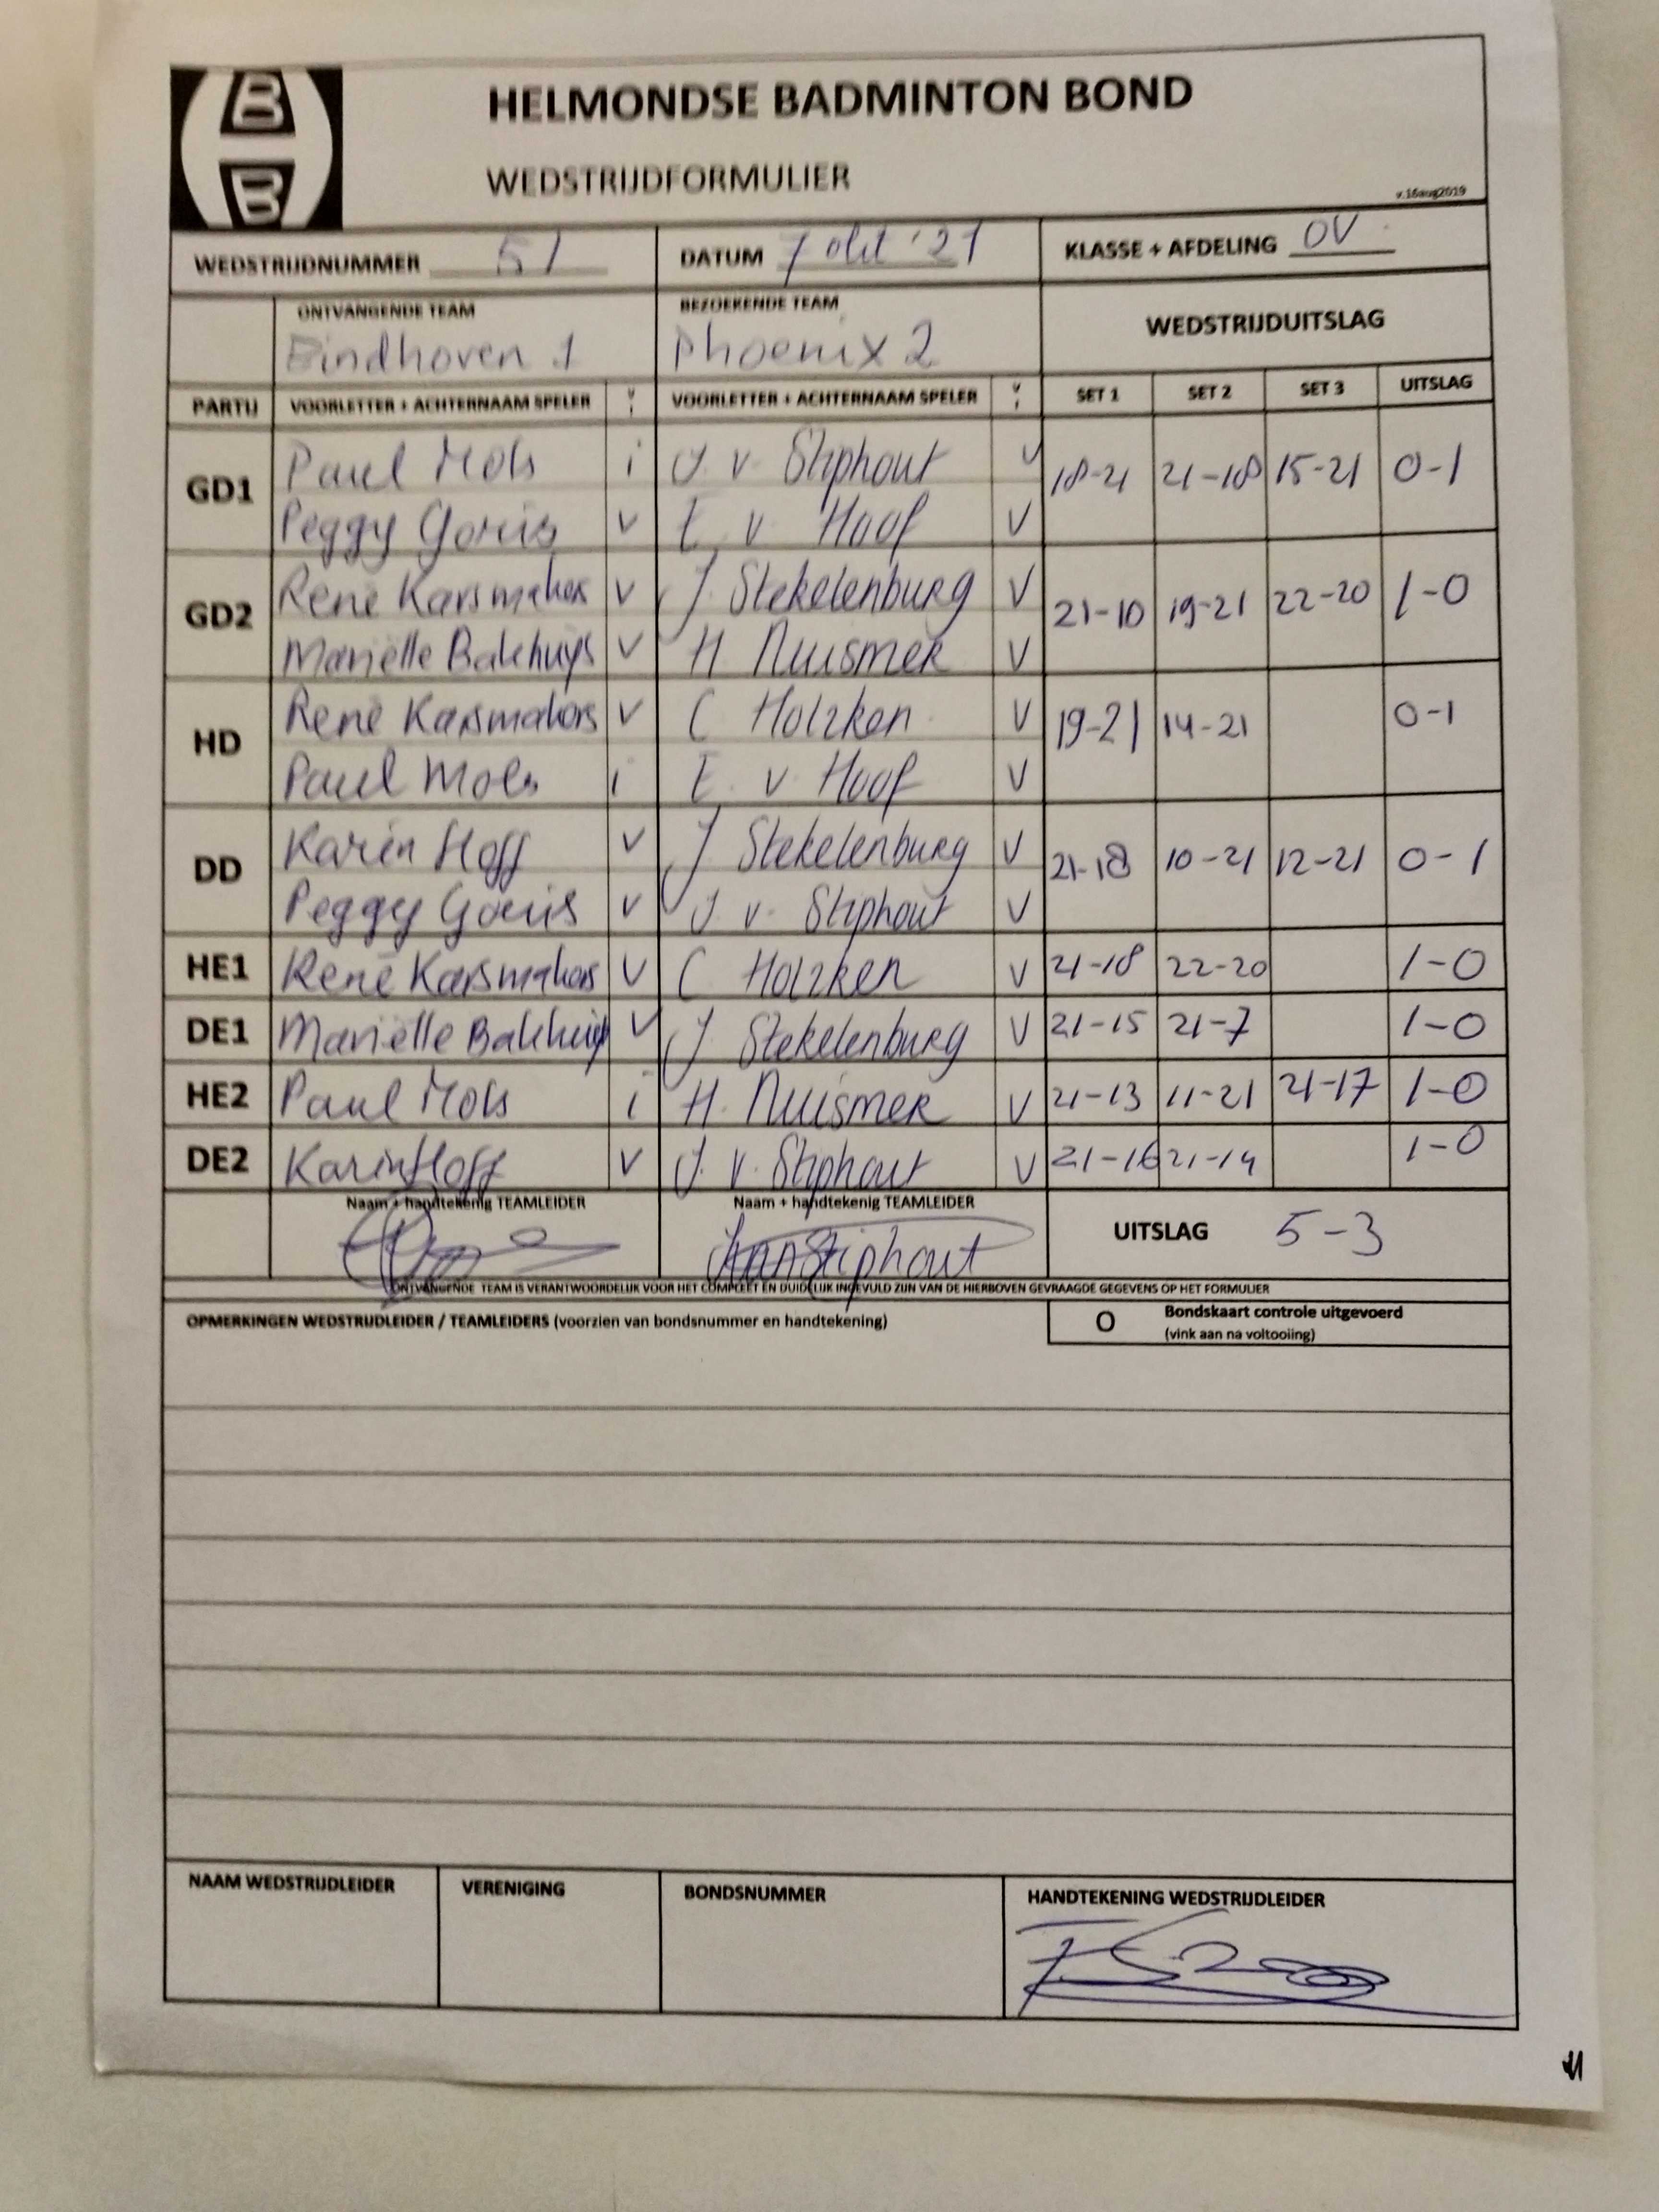 HELMONDSE BADMINTON BOND
WEDSTRIJDFORMULIER
v.16aug2019
WEDSTRIJDNUMMER 51 DATUM 7 okt '21 KLASSE + AFDELING OV
ONTVANGENDE TEAM BEZOEKENDE TEAM WEDSTRIJDUITSLAG
Eindhoven 1 Phoenix 2
PARTIJ VOORLETTER + ACHTERNAAM SPELER V I VOORLETTER + ACHTERNAAM SPELER V I SET 1 SET 2 SET 3 UITSLAG
GD1 Paul Mols i J. v. Stiphout V 18-21 21-18 15-21 0-1
Peggy Goris V E. v. Hoof V
GD2 René Karsmakers V J Stekelenburg V 21-10 19-21 22-20 1-0
Mariëlle Bakhuys V H Nuismer V
HD René Karsmakers V C Holzken V 19-21 14-21 0-1
Paul Mols i E. v. Hoof V
DD Karin Hoff V J Stekelenburg V 21-18 10-21 12-21 0-1
Peggy Goris V J. v. Stiphout V
HE1 René Karsmakers V C Holzken V 21-18 22-20 1-0
DE1 Mariëlle Bakhuys V J Stekelenburg V 21-15 21-7 1-0
HE2 Paul Mols i H. Nuismer V 21-13 11-21 21-17 1-0
DE2 Karin Hoff V J. v. Stiphout V 21-16 21-14 1-0
Naam + handtekenig TEAMLEIDER Naam + handtekenig TEAMLEIDER UITSLAG 5-3
ONTVANGENDE TEAM IS VERANTWOORDELIJK VOOR HET COMPLEET EN DUIDELIJK INGEVULD ZIJN VAN DE HIERBOVEN GEVRAAGDE GEGEVENS OP HET FORMULIER
OPMERKINGEN WEDSTRIJDLEIDER / TEAMLEIDERS (voorzien van bondsnummer en handtekening) O Bondskaart controle uitgevoerd
(vink aan na voltooiing)
NAAM WEDSTRIJDLEIDER VERENIGING BONDSNUMMER HANDTEKENING WEDSTRIJDLEIDER